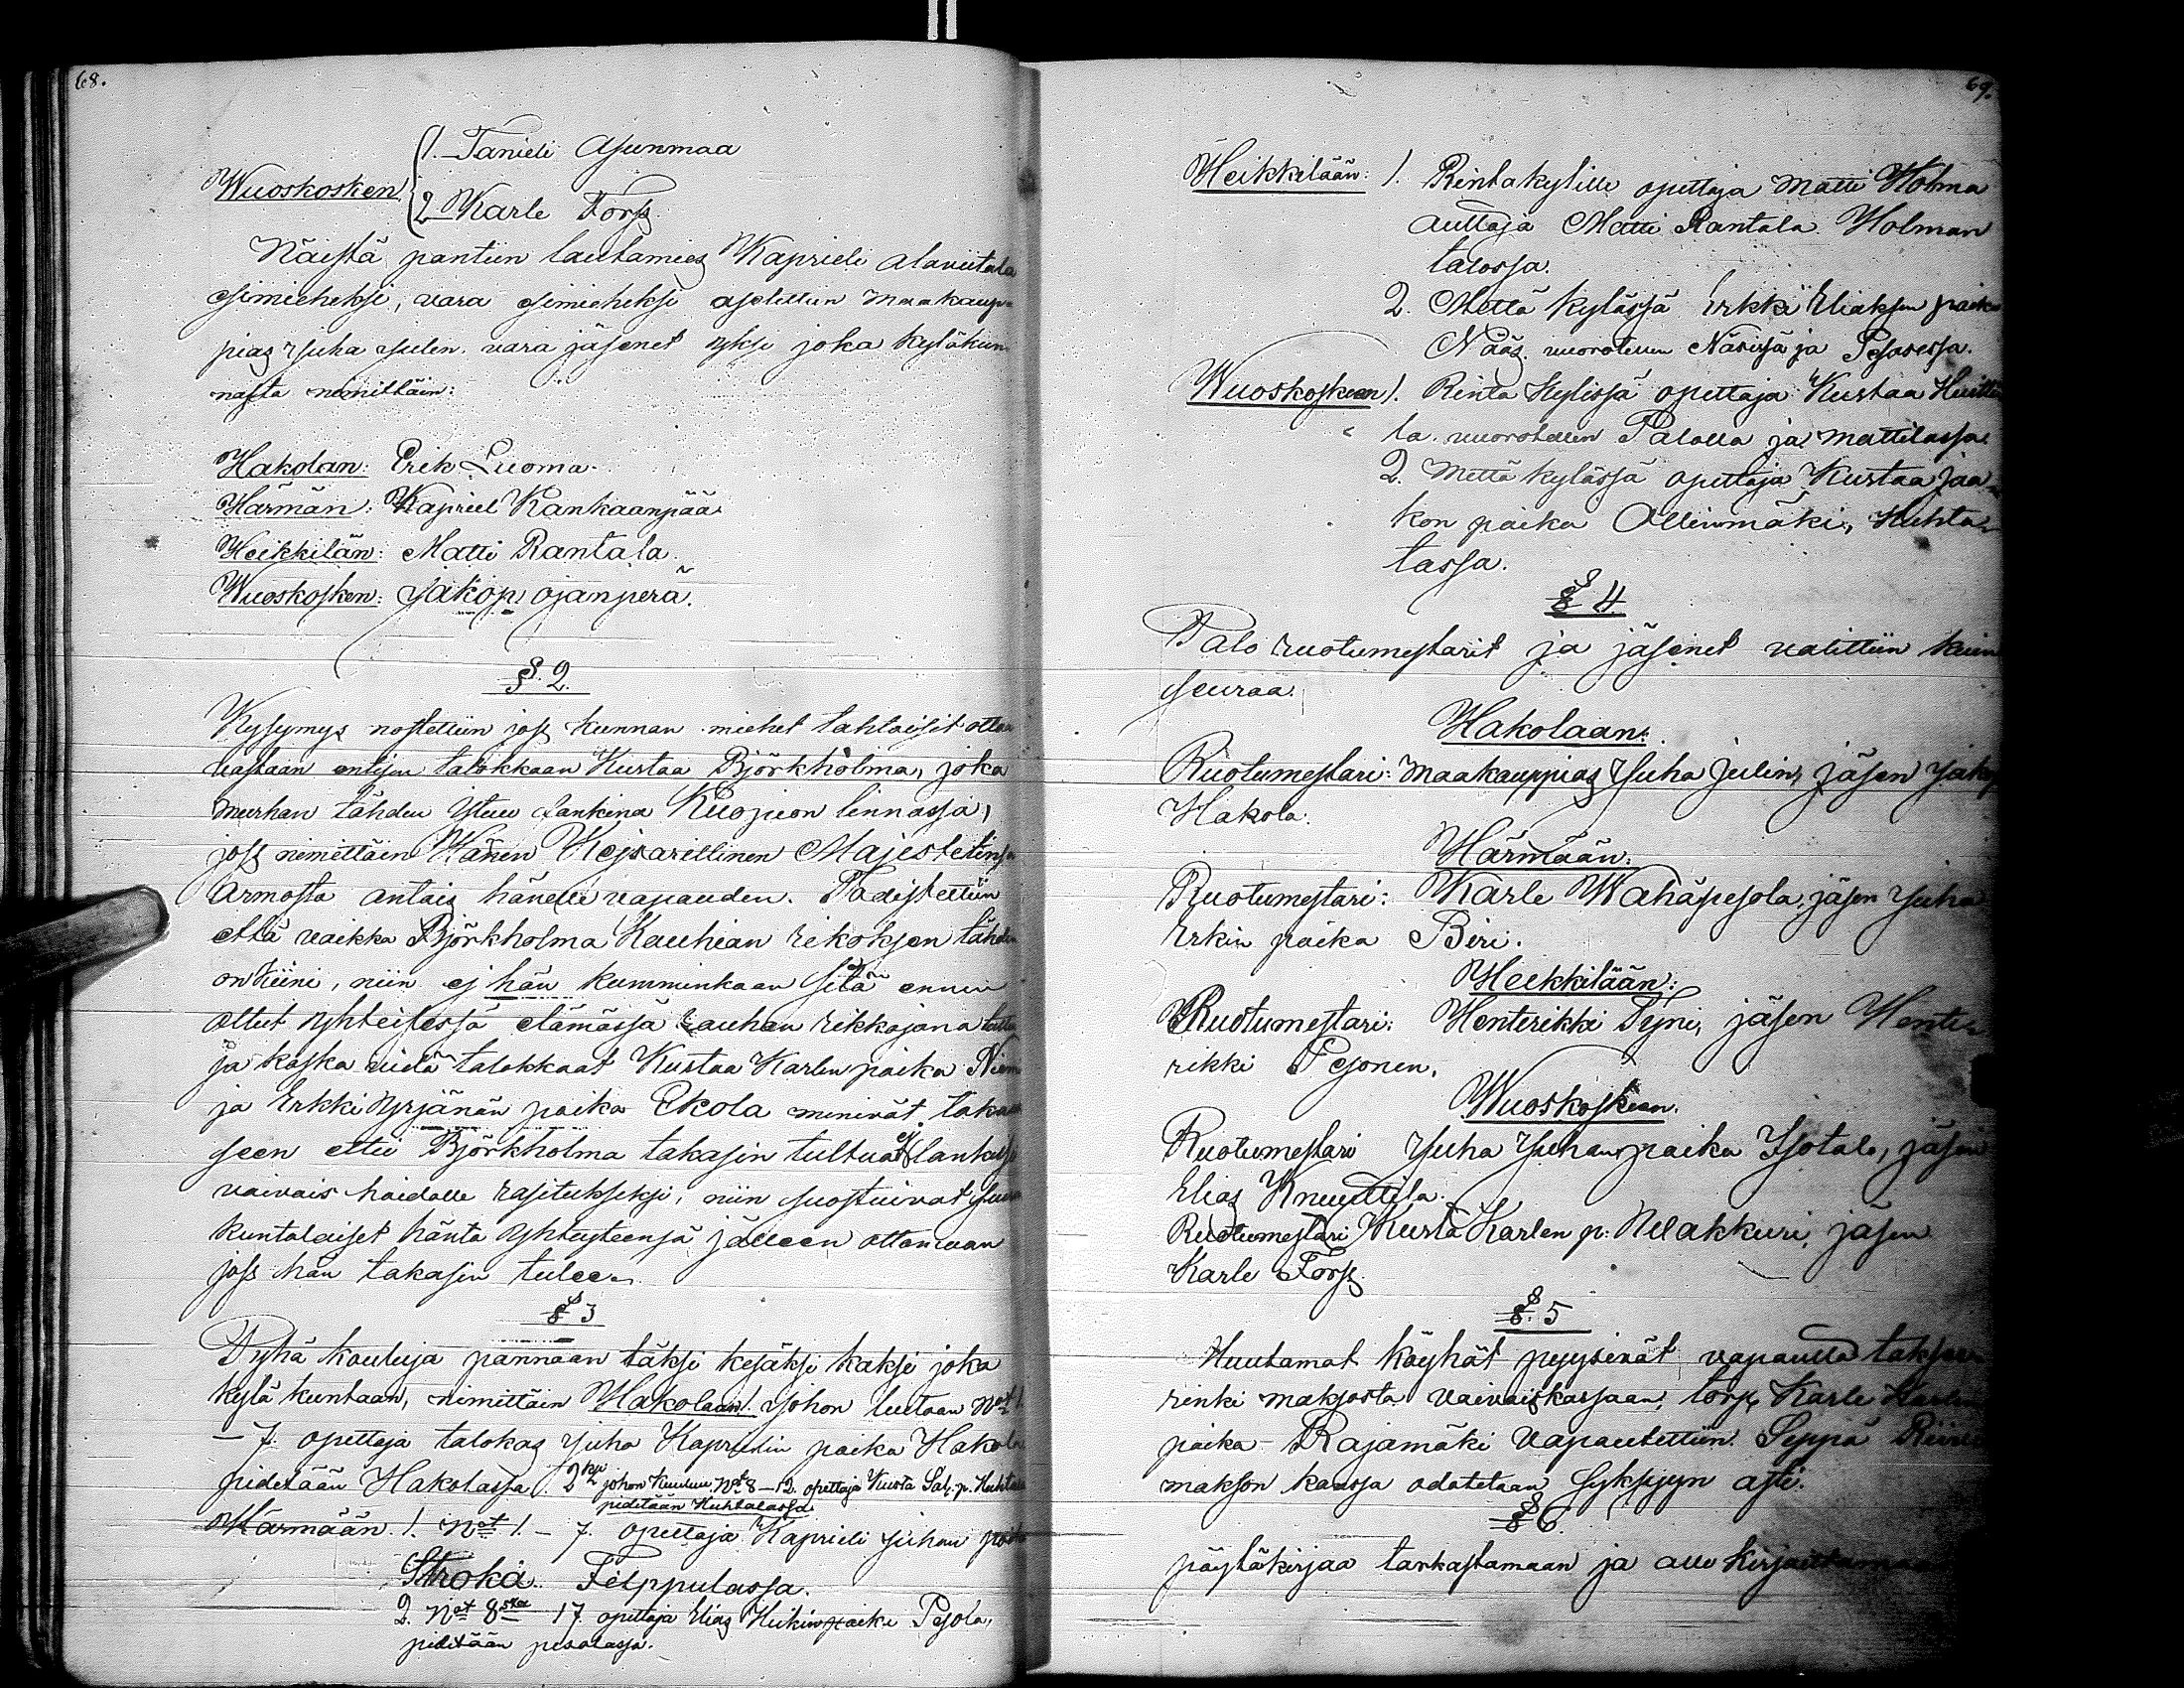 68.
1. Tanieli Asunmaa
Wuoskosken
2 Karle Forss
Näistä pantiin lautamies Kaprieli Alaviitala
esimieheksi, vara esimieheksi asetettiin maakaup-
pias Juha Julin. vara jäsenet yksi joka kyläkun-
nasta nimittäin:
Hakolan: Erik Luoma.
Härmän: Kapriel Kankaanpää
Heikkilän: Matti Rantala.
Wuoskosken: Jakop Ojanperä.
§ 2.
Kysymys nostettiin joss kunnan miehet tahtoisit ottaa
vastaan entisen talokkaan Kustaa Björkholma, joka
murhan tähden istuu fankina Kuopion linnassa,
joss nimittäin Hänen Kejsarillinen Majestetinsa
armosta antais hänelle vapauden. Todistettiin
että vaikka Björkholma Kauhian rikoksen tähden
on kiini, niin ej hän kumminkaan sitä ennen
ollut yhteisessä elämässä rauhan rikkojana
ja koska vielä talokkaat Kustaa Karlen poika
ja Erkki Yrjänän poika Ekola menivät
seen ettei Björkholma takasin tultua ej
vaivais hoidolle rasitukseksi, niin suostuivat
kuntalaiset häntä yhteyteensä jälleen ottamaan
joss hän takasin tulee.
§ 3
Pyhä kouluja pannaan täksi kesäksi kaksi joka
kylä kuntaan, nimittäin Hakolaan 1. johon luetaan Not 1.
- 7. opettaja talokas Juha Kaprielin poika Hakola
pidetään Hakolassa. 2ksi johon kuuluu Not 8 - 12. opettaja Kusta Sal. p. Huhtala
pidetään Huhtalassa
Härmään 1. Not 1. - 7. opettaja Kaprieli Juhan poika
Stroka. Felppulassa.
2. Not 8ska 17 opettaja Elias Heikin poika Pesola,
pidetään pesolassa.
69.
Heikkilään: 1. Rintakylille opettaja Matti Holma
auttaja Matti Rantala Holman
talossa.
2. Mettä kylässä Erkki Eliaksen poika
Nääs. vuorotellen Näsissä ja Pesosessa.
Wuoskoskeen 1. Rinta Kylissä opettaja Kustaa Huitti
la. vuorotellen Palolla ja Mattilassa
2. Mettä kylässä opettaja Kustaa Jaa-
kon poika Ollinmäki, Huhta-
lassa.
§ 4
Palo ruotumestarit ja jäsenet valittiin kuin
seuraa.
Hakolaan:
Ruotumestari: Maakauppias Juha Julin, jäsen Jakop
Hakola.
Härmään:
Ruotumestari: Karle Wähäpesola, jäsen Juha
Erkin poika Biri.
Heikkilään:
Ruotumestari: Henterikki Tyni, jäsen Hente-
rikki Pesonen.
Wuoskoskeen.
Ruotumestari Juha Juhan poika Isotalo, jäsen
Elias Knuuttila.
Ruotumestari Kusta Karlen p. Nelakkuri, jäsen
Karle Forss.
§. 5
Muutamat köyhät pyysivät vapautta takseer
rinki maksosta vaivaiskassaan, torp. Karle
poika Rajamäki vapautettiin. Seppä
makson kanssa odotetaan syksyyn asti.
§ 6.
pöytäkirjaa tarkastamaan ja alle kirjoittamaan